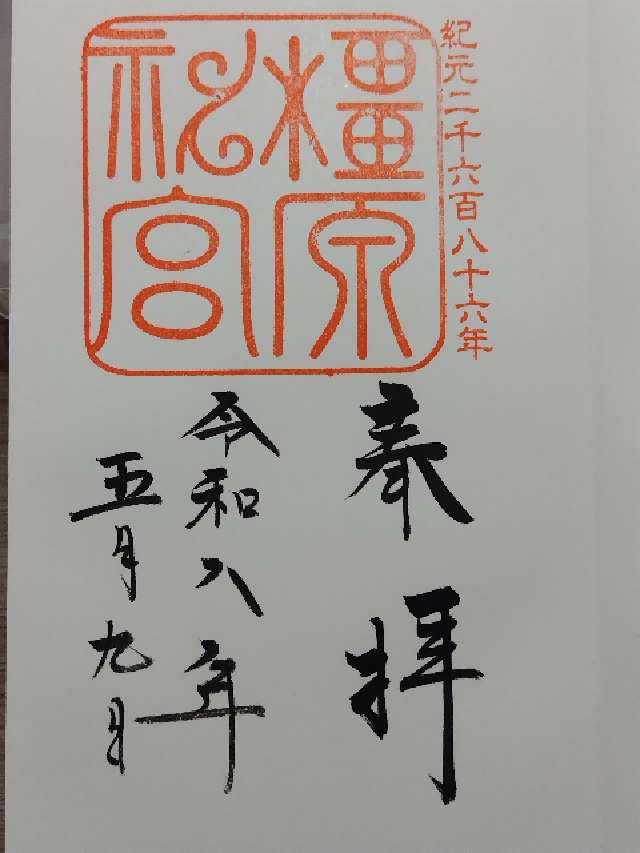 紀元二千六百八十六年
橿原
神宮
奉拝
令和八年
五月九日